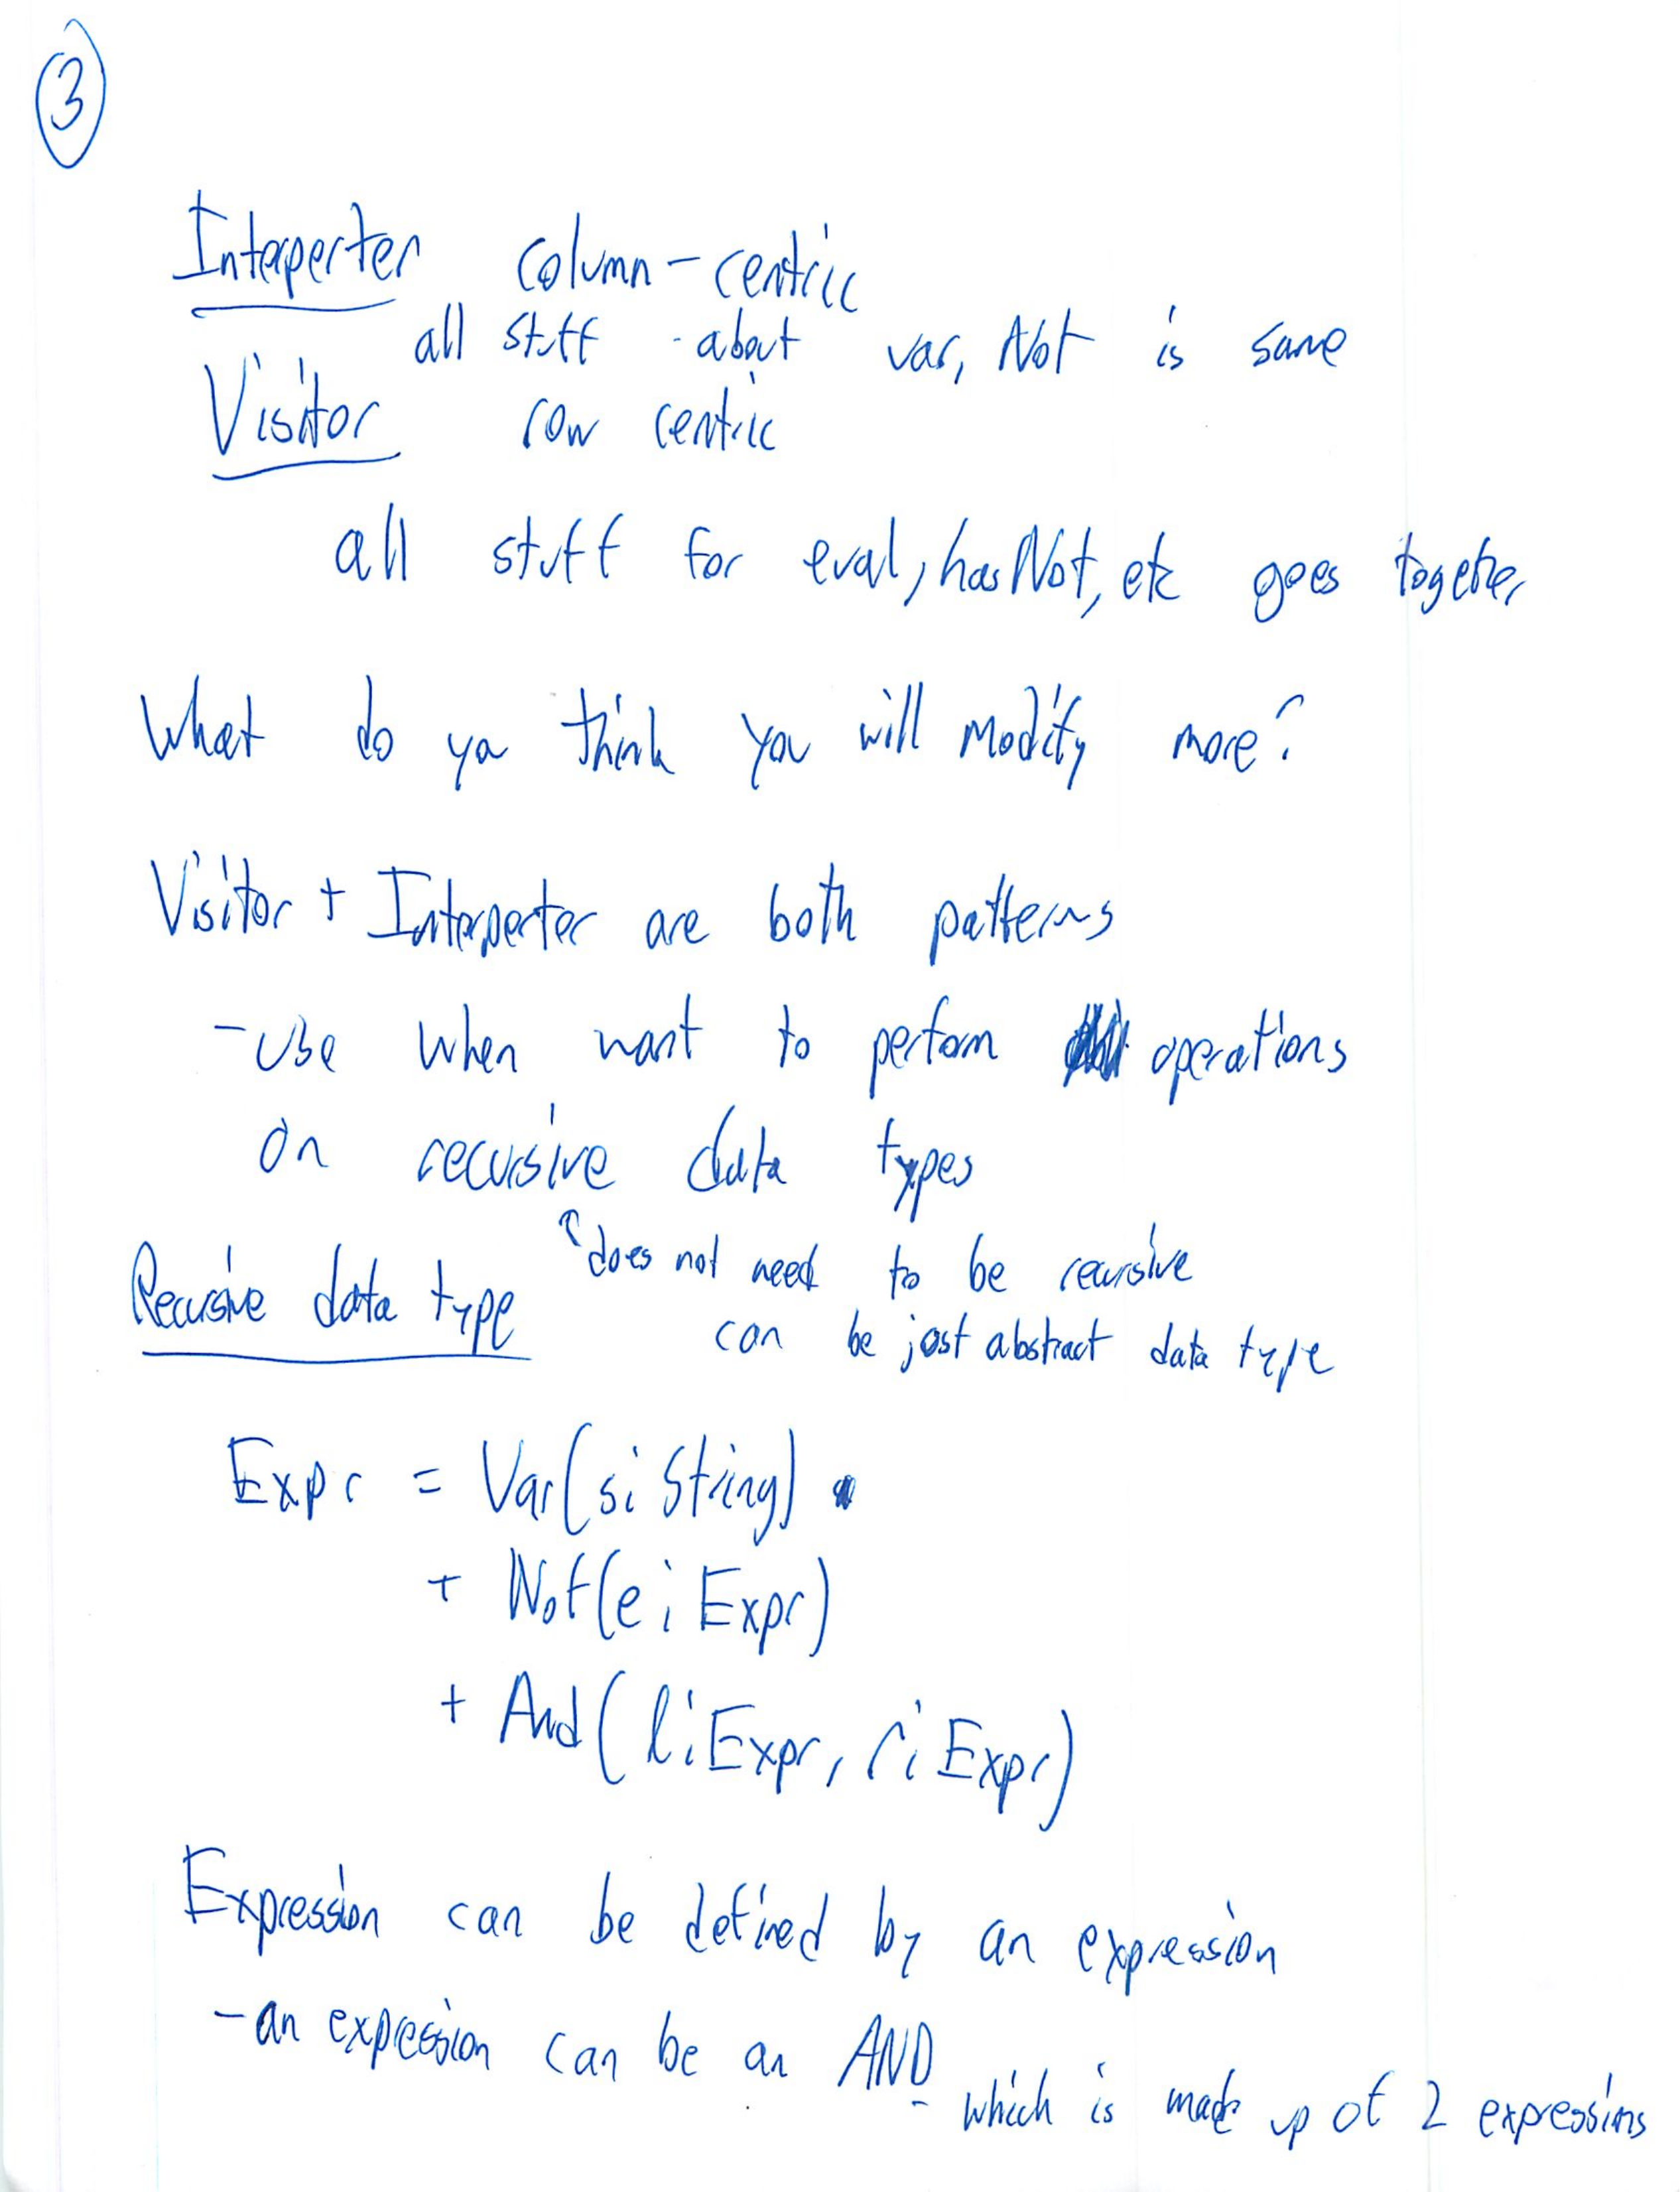 3
Interperter column-centric
all stuff - about var, Not is same
Visitor row centric
all stuff for eval, hasNot, etc goes together
What do ya think you will modify more?
Visitor + Interperter are both patterns
- Use when want to perform operations
on recursive data types
↑ does not need to be recursive
Recursive data type can be just abstract data type
Expr = Var(s: String)
+ Not(e: Expr)
+ And(l: Expr, r: Expr)
Expression can be defined by an expression
- an expression can be an AND
which is made up of 2 expressions